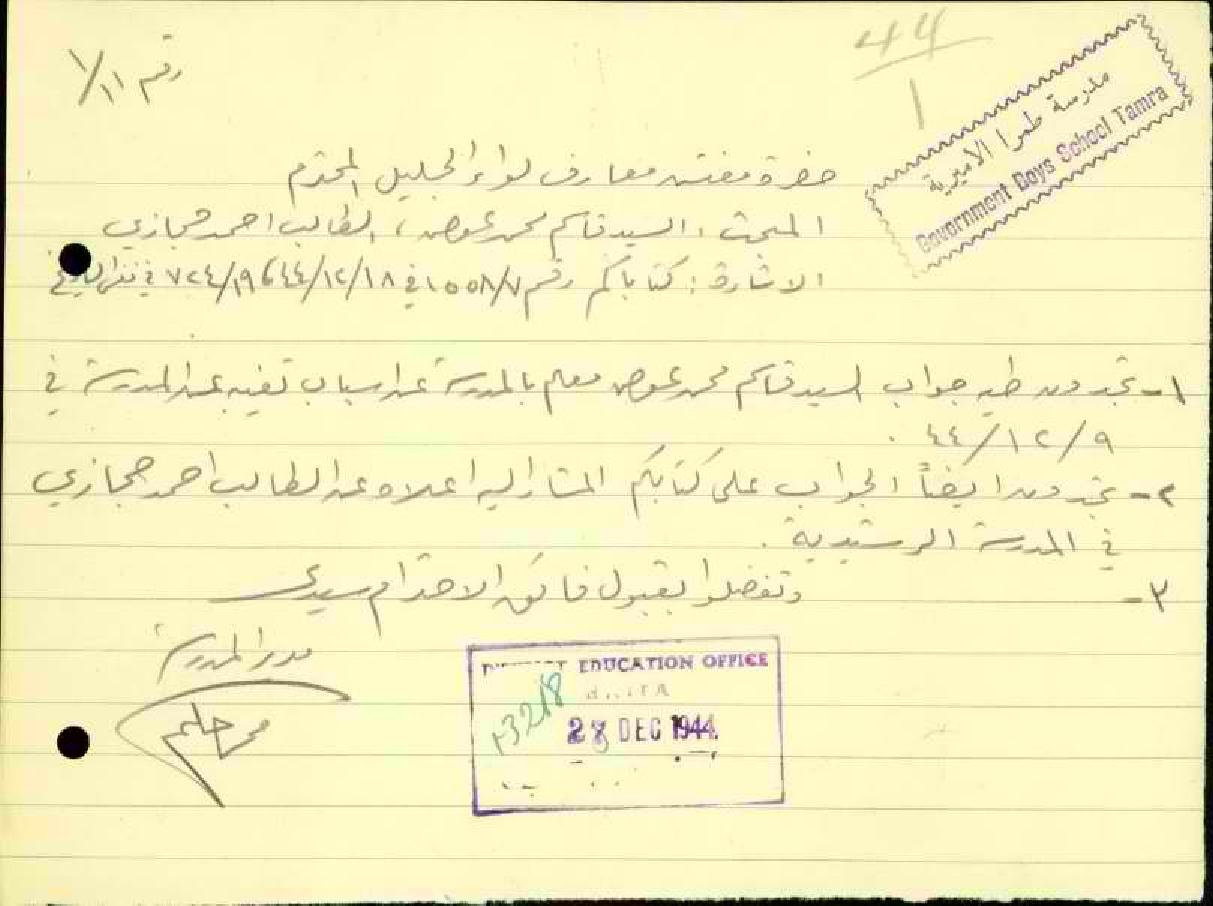 رقم ١/١١
44
1
مدرسة طمرا الاميرية
Government Boys School Tamra
حضرة مفتش معارف لواء الجليل المحترم
المبحث: السيد قاسم محمد عوض، الطالب احمد حجازي
الاشارة: كتاباكم رقم ١٥٥٨/٧ في ٤٤/١٢/١٨ و ٧٢٤/١٩ في نفس التاريخ
١- تجدون طيه جواب السيد قاسم محمد عوض معلم بالمدرسة عن اسباب تغيبه عن المدرسة في
٤٤/١٢/٩ .
٢- تجدون ايضاً الجواب على كتابكم المشار اليه اعلاه عن الطالب احمد حجازي
في المدرسة الرشيدية .
٣- وتفضلوا بقبول فائق الاحترام سيدي
مدير المدرسة
EDUCATION OFFICE
3218
DEC 1944